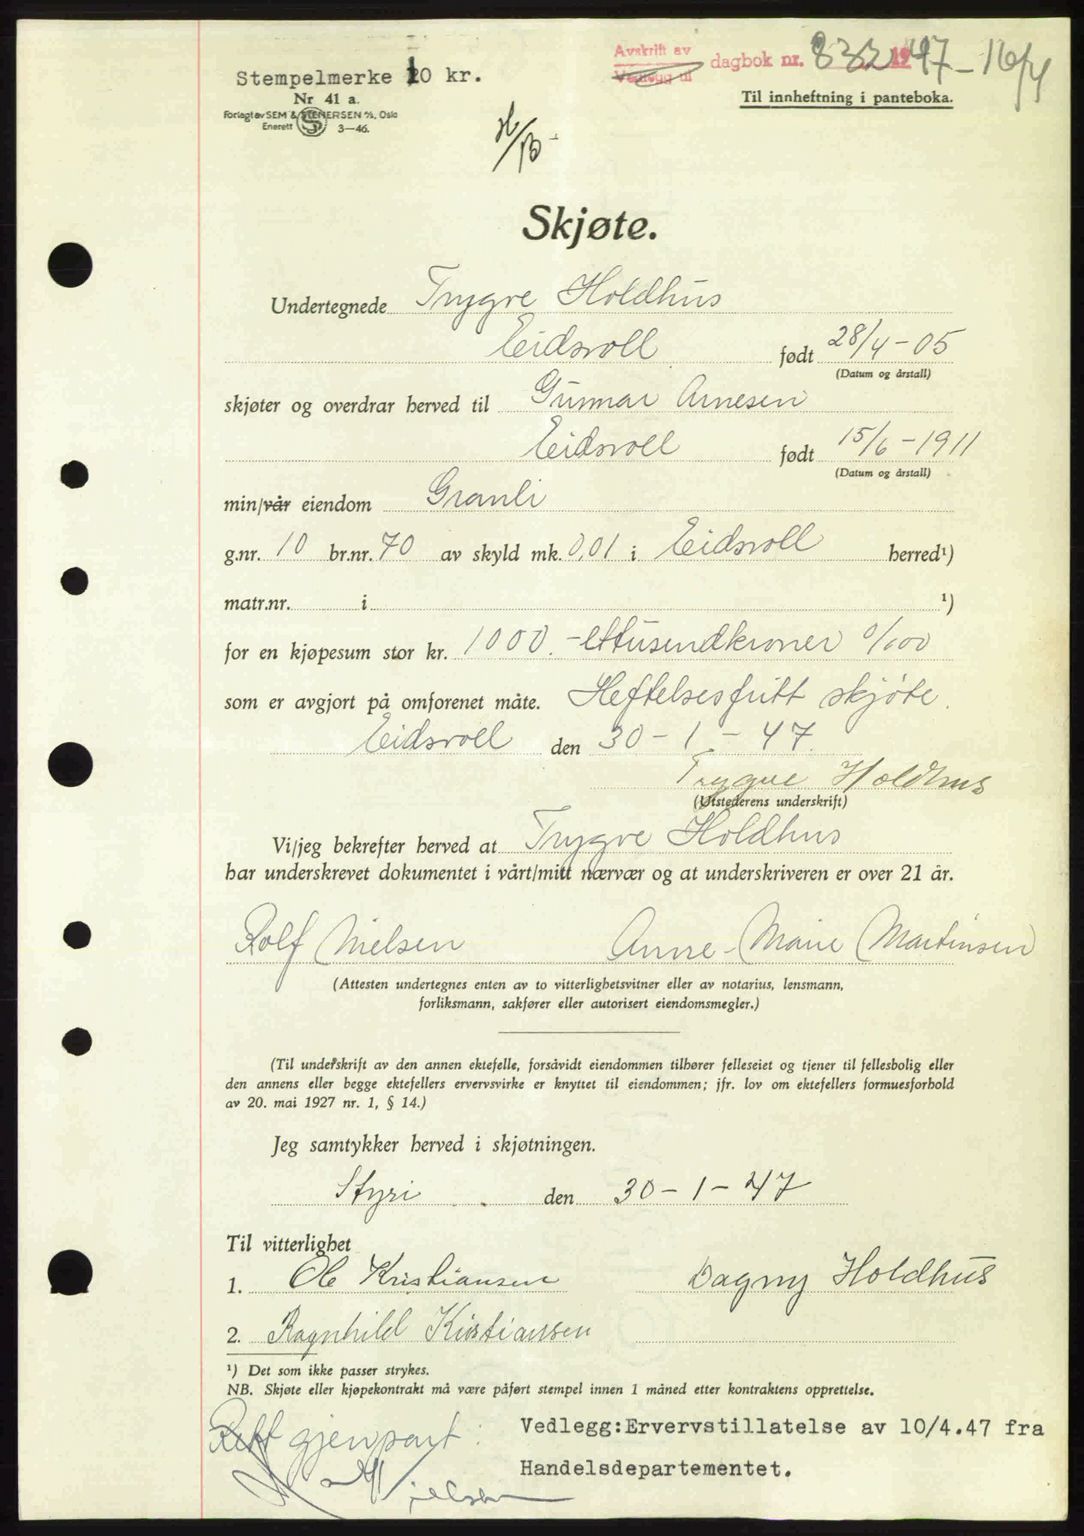 Avskrift av
Vedlegg til
dagbok nr. 832 1947-16/4
Stempelmerke 10 kr.
Nr 41 a.
Forlagt av SEM & STENERSEN A/S, Oslo
Enerett 3—46.
Til innheftning i panteboka.
Skjøte.
Undertegnede Trygve Holdhus
Eidsvoll født 28/4-05
(Datum og årstall)
skjøter og overdrar herved til Gunnar Arnesen
Eidsvoll født 15/6-1911
(Datum og årstall)
min/vår eiendom Granli
g.nr. 10 br.nr. 70 av skyld mk. 0,01 i Eidsvoll herred¹)
matr.nr. i ¹)
for en kjøpesum stor kr. 1000.-ettusendkroner 0/100
som er avgjort på omforenet måte. Heftelsesfritt skjöte.
Eidsvoll den 30-1-47
Trygve Holdhus
(Utstederens underskrift)
Vi/jeg bekrefter herved at Trygve Holdhus
har underskrevet dokumentet i vårt/mitt nærvær og at underskriveren er over 21 år.
Rolf Nielsen Anne-Marie Martinsen
(Attesten undertegnes enten av to vitterlighetsvitner eller av notarius, lensmann,
forliksmann, sakfører eller autorisert eiendomsmegler.)
(Til underskrift av den annen ektefelle, forsåvidt eiendommen tilhører felleseiet og tjener til fellesbolig eller
den annens eller begge ektefellers ervervsvirke er knyttet til eiendommen; jfr. lov om ektefellers formuesforhold
av 20. mai 1927 nr. 1, § 14.)
Jeg samtykker herved i skjøtningen.
Styri den 30-1-47
Til vitterlighet
1. Ole Kristiansen Dagny Holdhus
2. Ragnhild Kristiansen
¹) Det som ikke passer strykes.
NB. Skjøte eller kjøpekontrakt må være påført stempel innen 1 måned etter kontraktens opprettelse.
Rett gjenpart:
Vedlegg:Ervervstillatelse av 10/4.47 fra
Handelsdepartementet.